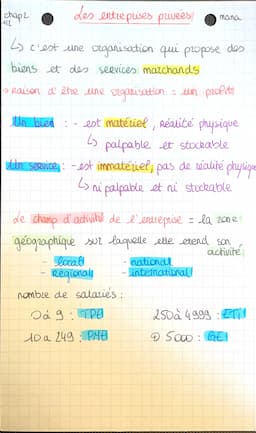 chap2 Les entreprises privées mana
↳ c'est une organisation qui propose des
biens et des services marchands
→ raison d'être une organisation = un profit
Un bien : - est matériel, réalité physique
↳ palpable et stockable
Un service : - est immatériel, pas de réalité physique
↳ ni palpable et ni stockable
Le champ d'activité de l'entreprise = la zone
géographique sur laquelle elle etend son
activité
- local - national
- regional - international
nombre de salariés :
0 à 9 : TPE 250 à 4999 : ETI
10 a 249 : PME 5000 : GE